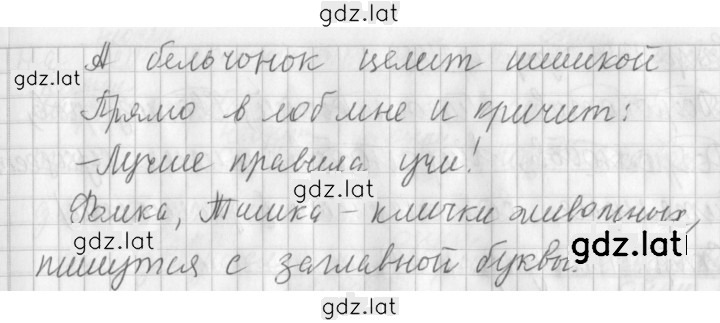 gdz.lat
А бельчонок целит шишкой
gdz.lat
Прямо в лоб мне и кричит:
-Лучше правила учи!
gdz.lat
Фомка, Тишка - клички животных,
gdz.lat
gdz.lat
пишутся с заглавной буквы.
gdz.lat